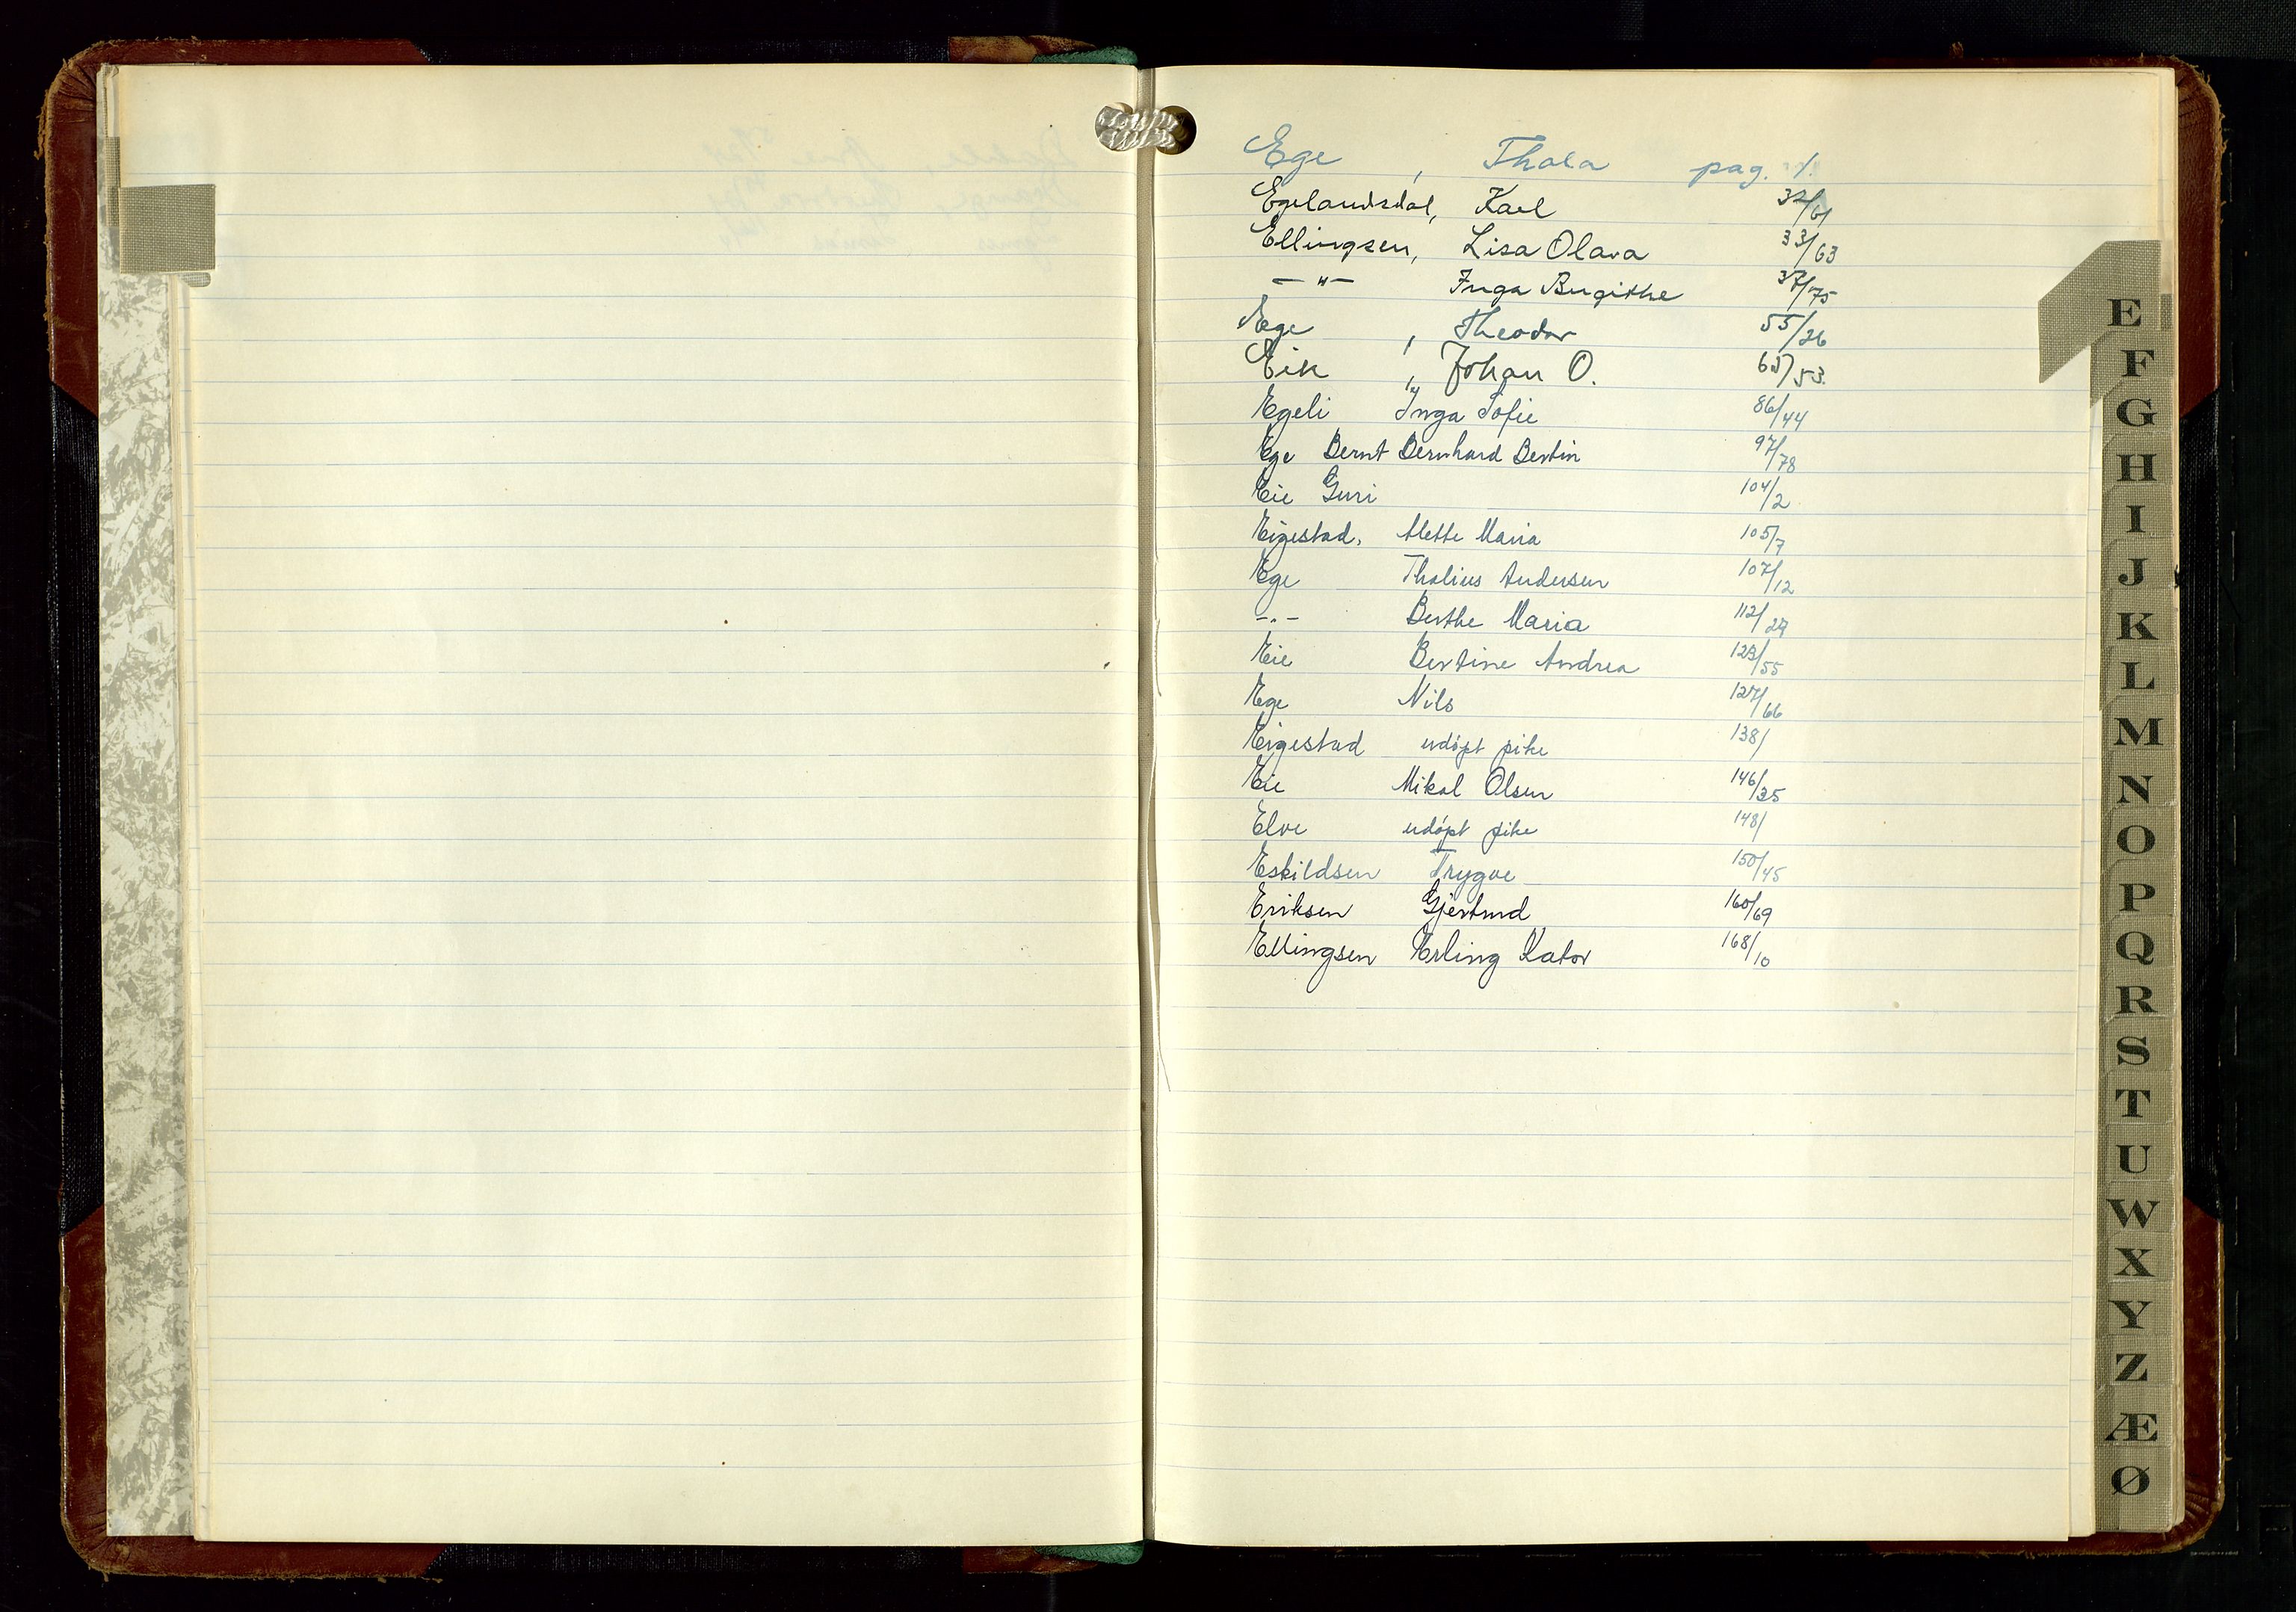 Ege , Thala pag. 1.
Egelandsdal, Karl 32/61
Ellingsen, Lisa Olava 33/63
— " — Inga Birgithe 37/75
Ege , Theodor 55/26
Eik , Johan O. 65/53.
Egeli " Inga Sofie 86/44
Ege Bernt Bernhard Bertin 97/78
Eie Guri 104/2
Eigestad, Mette Maria 105/7
Ege Thalius Andersen 107/12
-"- Berthe Maria 112/29
Eie Bertine Andrea 123/55
Ege Nils 127/66
Eigestad udøpt pike 138/
Eie Mikal Olsen 146/35
Elve udøpt pike 148/
Eskildsen Trygve 150/45
Eriksen Gjertrud 160/69
Ellingsen Erling Kator 168/10
E
F
G
H
I
J
K
L
M
N
O
P
Q
R
S
T
U
W
X
Y
Z
Æ
Ø